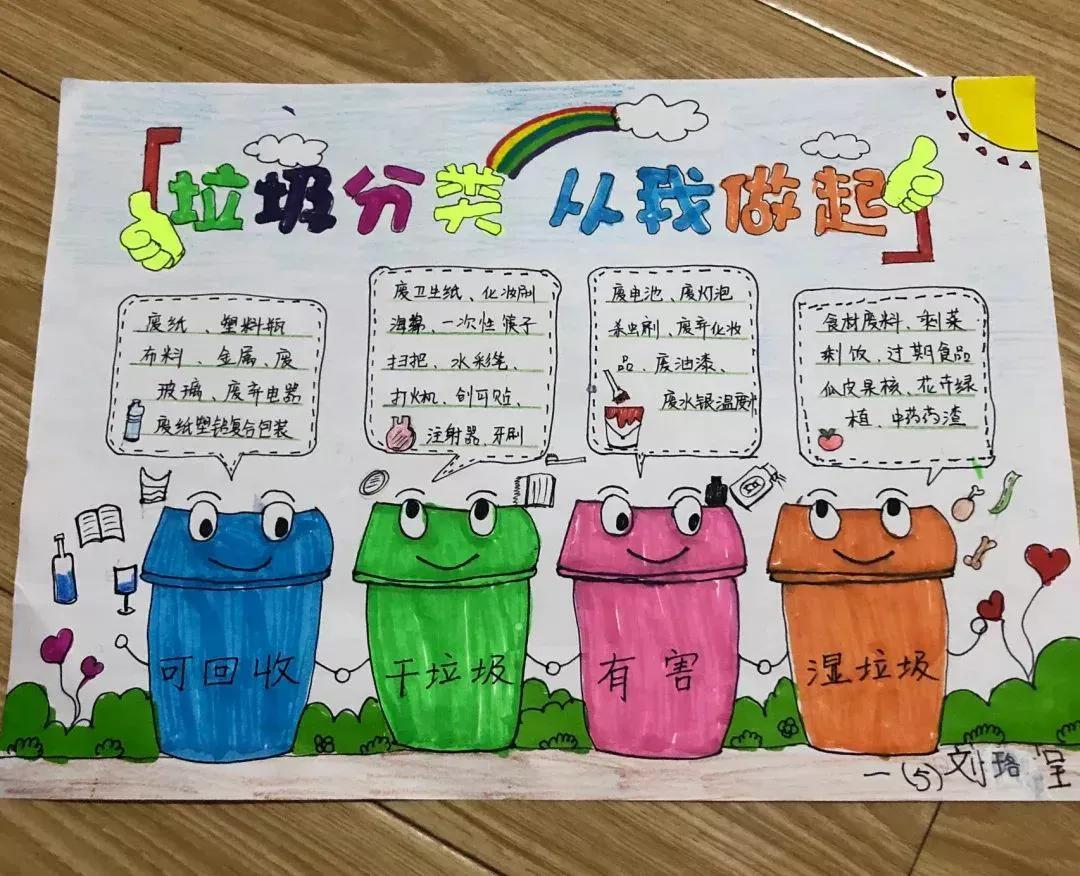 垃圾分类 从我做起
废纸、塑料瓶
布料、金属、废
玻璃、废弃电器
废纸塑铝复合包装
废卫生纸、化妆刷
海绵、一次性筷子
扫把、水彩笔、
打火机、创可贴、
注射器、牙刷
废电池、废灯泡
杀虫剂、废弃化妆
品、废油漆、
废水银温度计
食材废料、剩菜
剩饭、过期食品
瓜皮果核、花卉绿
植、中药药渣
可回收
干垃圾
有害
湿垃圾
一(5)刘珞呈